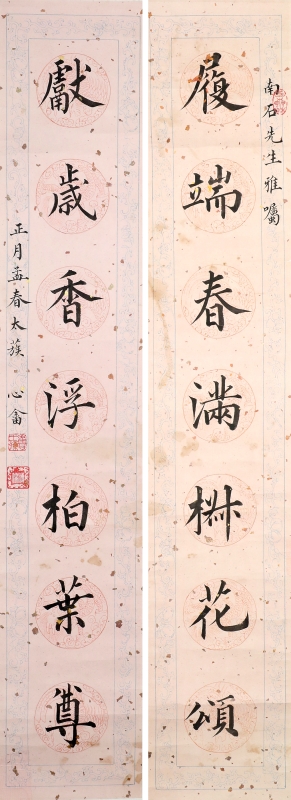 南石先生雅嘱
履端春满椒花颂
獻歲香浮柏葉尊
正月孟春太蔟 心畬